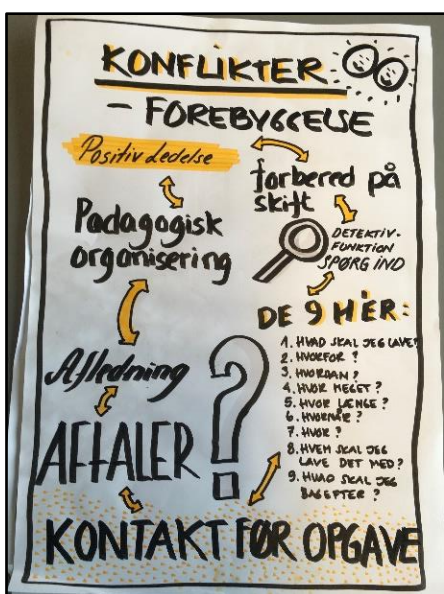 KONFLIKTER
- FOREBYGGELSE
Positiv Ledelse
forbered på
skift
Pædagogisk
organisering
DETEKTIV-
FUNKTION
SPØRG IND
DE 9 H'ER:
1. HVAD SKAL JEG LAVE?
2. HVORFOR?
3. HVORDAN?
4. HVOR MEGET?
5. HVOR LÆNGE?
6. HVORNÅR?
7. HVOR?
8. HVEM SKAL JEG
LAVE DET MED?
9. HVAD SKAL JEG
BAGEFTER?
Afledning
?
AFTALER
KONTAKT FØR OPGAVE